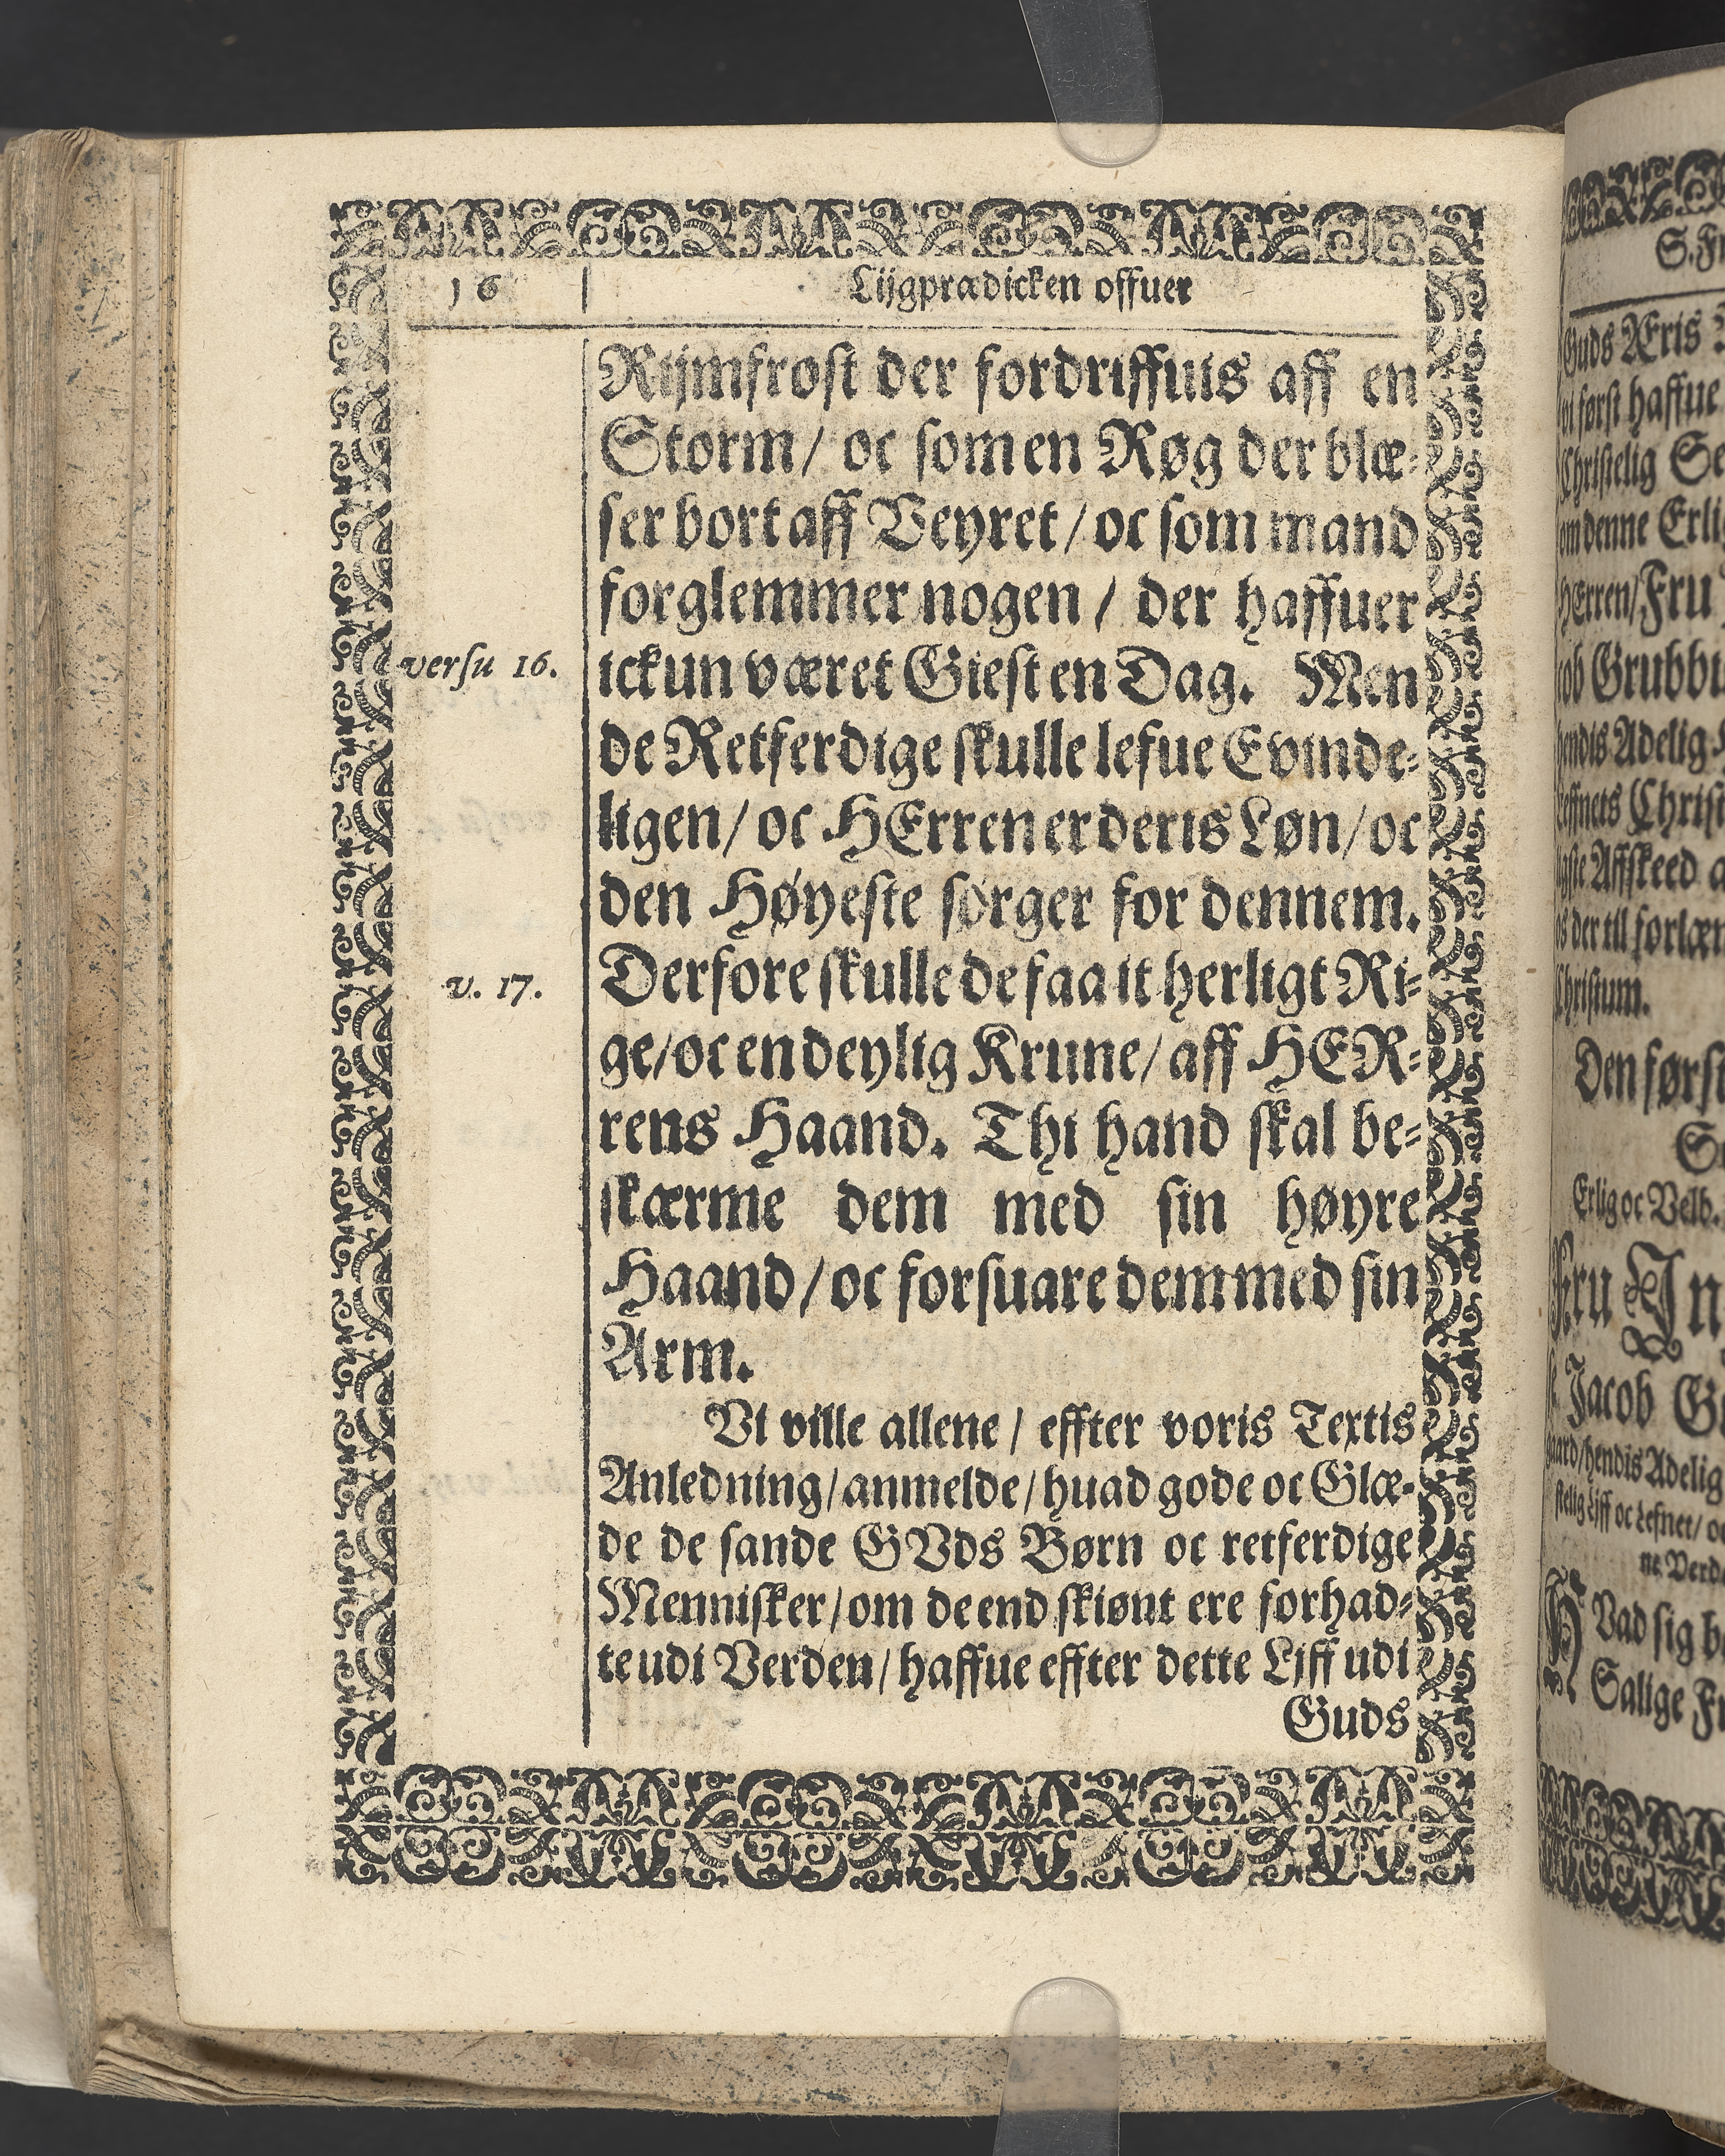 16
Lijgprædicken offuer
Rijmfrost der fordriffuis aff en
Storm/ oc som en Røg der blæ-
ser bort aff Veyret/ oc som mand
forglemmer nogen/ der haffuer
versu 16.
ickun været Giest en Dag. Men
de Retferdige skulle lefue Evinde-
ligen/ oc HErren er deris Løn/ oc
den Høyeste sørger for dennem.
v. 17.
Derfore skulle de faa it herligt Ri-
ge/ oc en deylig Krune/ aff HER-
rens Haand. Thi hand skal be-
skærme dem med sin høyre
Haand/ oc forsuare dem med sin
Arm.
Vi ville allene/ effter voris Textis
Anledning/ anmelde/ huad gode oc Glæ-
de de sande GVds Børn oc retferdige
Mennisker/ om de end skiønt ere forhad-
te udi Verden/ haffue effter dette Liff udi
Guds
S. Fr
Guds Æris
vi først haffue
Christelig Se
om denne Erli
HErren/ Fru
ob Grubbu
hendis Adelig
leffnets Christ
ste Affskeed
s der till forlæn
Christum.
Den først
Erlig oc Velb.
Fru In
Jacob G
gaard/ hendis Adelig
stelig Liff oc Lefnet/ o
ne Verd
HVad sig b
Salige Fr